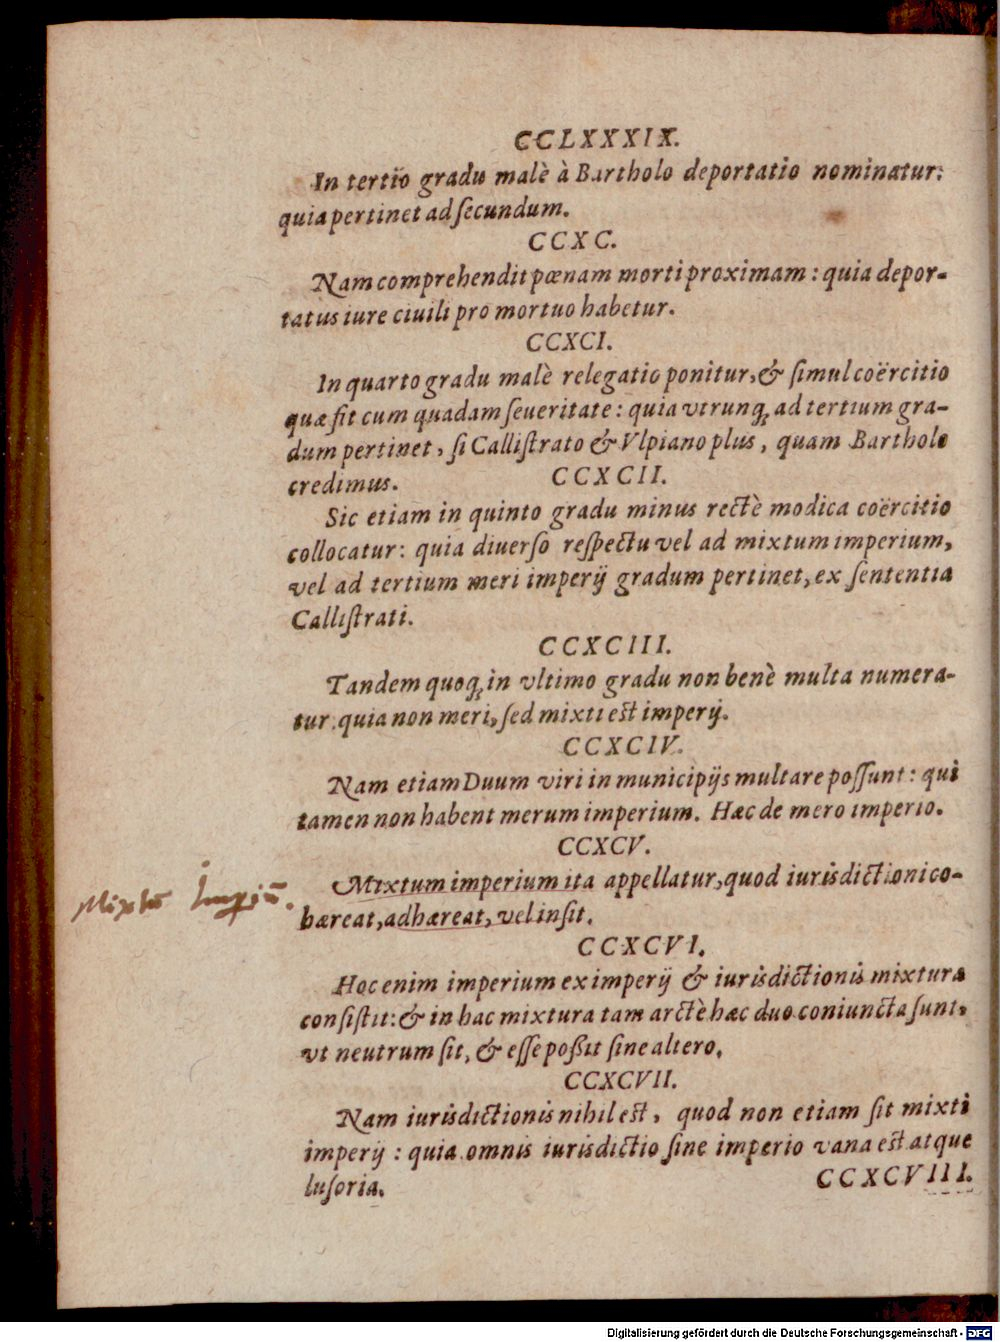 CCLXXXIX.
In tertio gradu malè à Bartholo deportatio nominatur:
quia pertinet ad ſecundum.
CCXC.
Nam comprehendit pœnam morti proximam : quia depor-
tatus iure ciuili pro mortuo habetur.
CCXCI.
In quarto gradu malè relegatio ponitur, & ſimul coërcitio
quæ fit cum quadam ſeueritate : quia vtrunq́; ad tertium gra-
dum pertinet, ſi Calliſtrato & Vlpiano plus, quam Bartholo
credimus. CCXCII.
Sic etiam in quinto gradu minus rectè modica coërcitio
collocatur : quia diuerſo reſpectu vel ad mixtum imperium,
vel ad tertium meri imperij gradum pertinet, ex ſententia
Calliſtrati.
CCXCIII.
Tandem quoq́; in vltimo gradu non benè multa numera-
tur quia non meri, ſed mixti eſt imperij.
CCXCIV.
Nam etiam Duum viri in municipijs multare poſſunt : qui
tamen non habent merum imperium. Hæc de mero imperio.
CCXCV.
Mixtum imperium ita appellatur, quod iurisdictioni co-
hæreat, adhæreat, vel inſit.
Mixtū Imperiū.
CCXCVI.
Hoc enim imperium ex imperij & iurisdictionis mixtura
conſiſtit: & in hac mixtura tam arctè hæc duo coniuncta ſunt,
vt neutrum ſit, & eſſe poßit ſine altero.
CCXCVII.
Nam iurisdictionis nihil eſt, quod non etiam ſit mixti
imperij : quia omnis iurisdictio ſine imperio vana eſt atque
luſoria. CCXCVIII.
Digitalisierung gefördert durch die Deutsche Forschungsgemeinschaft - DFG